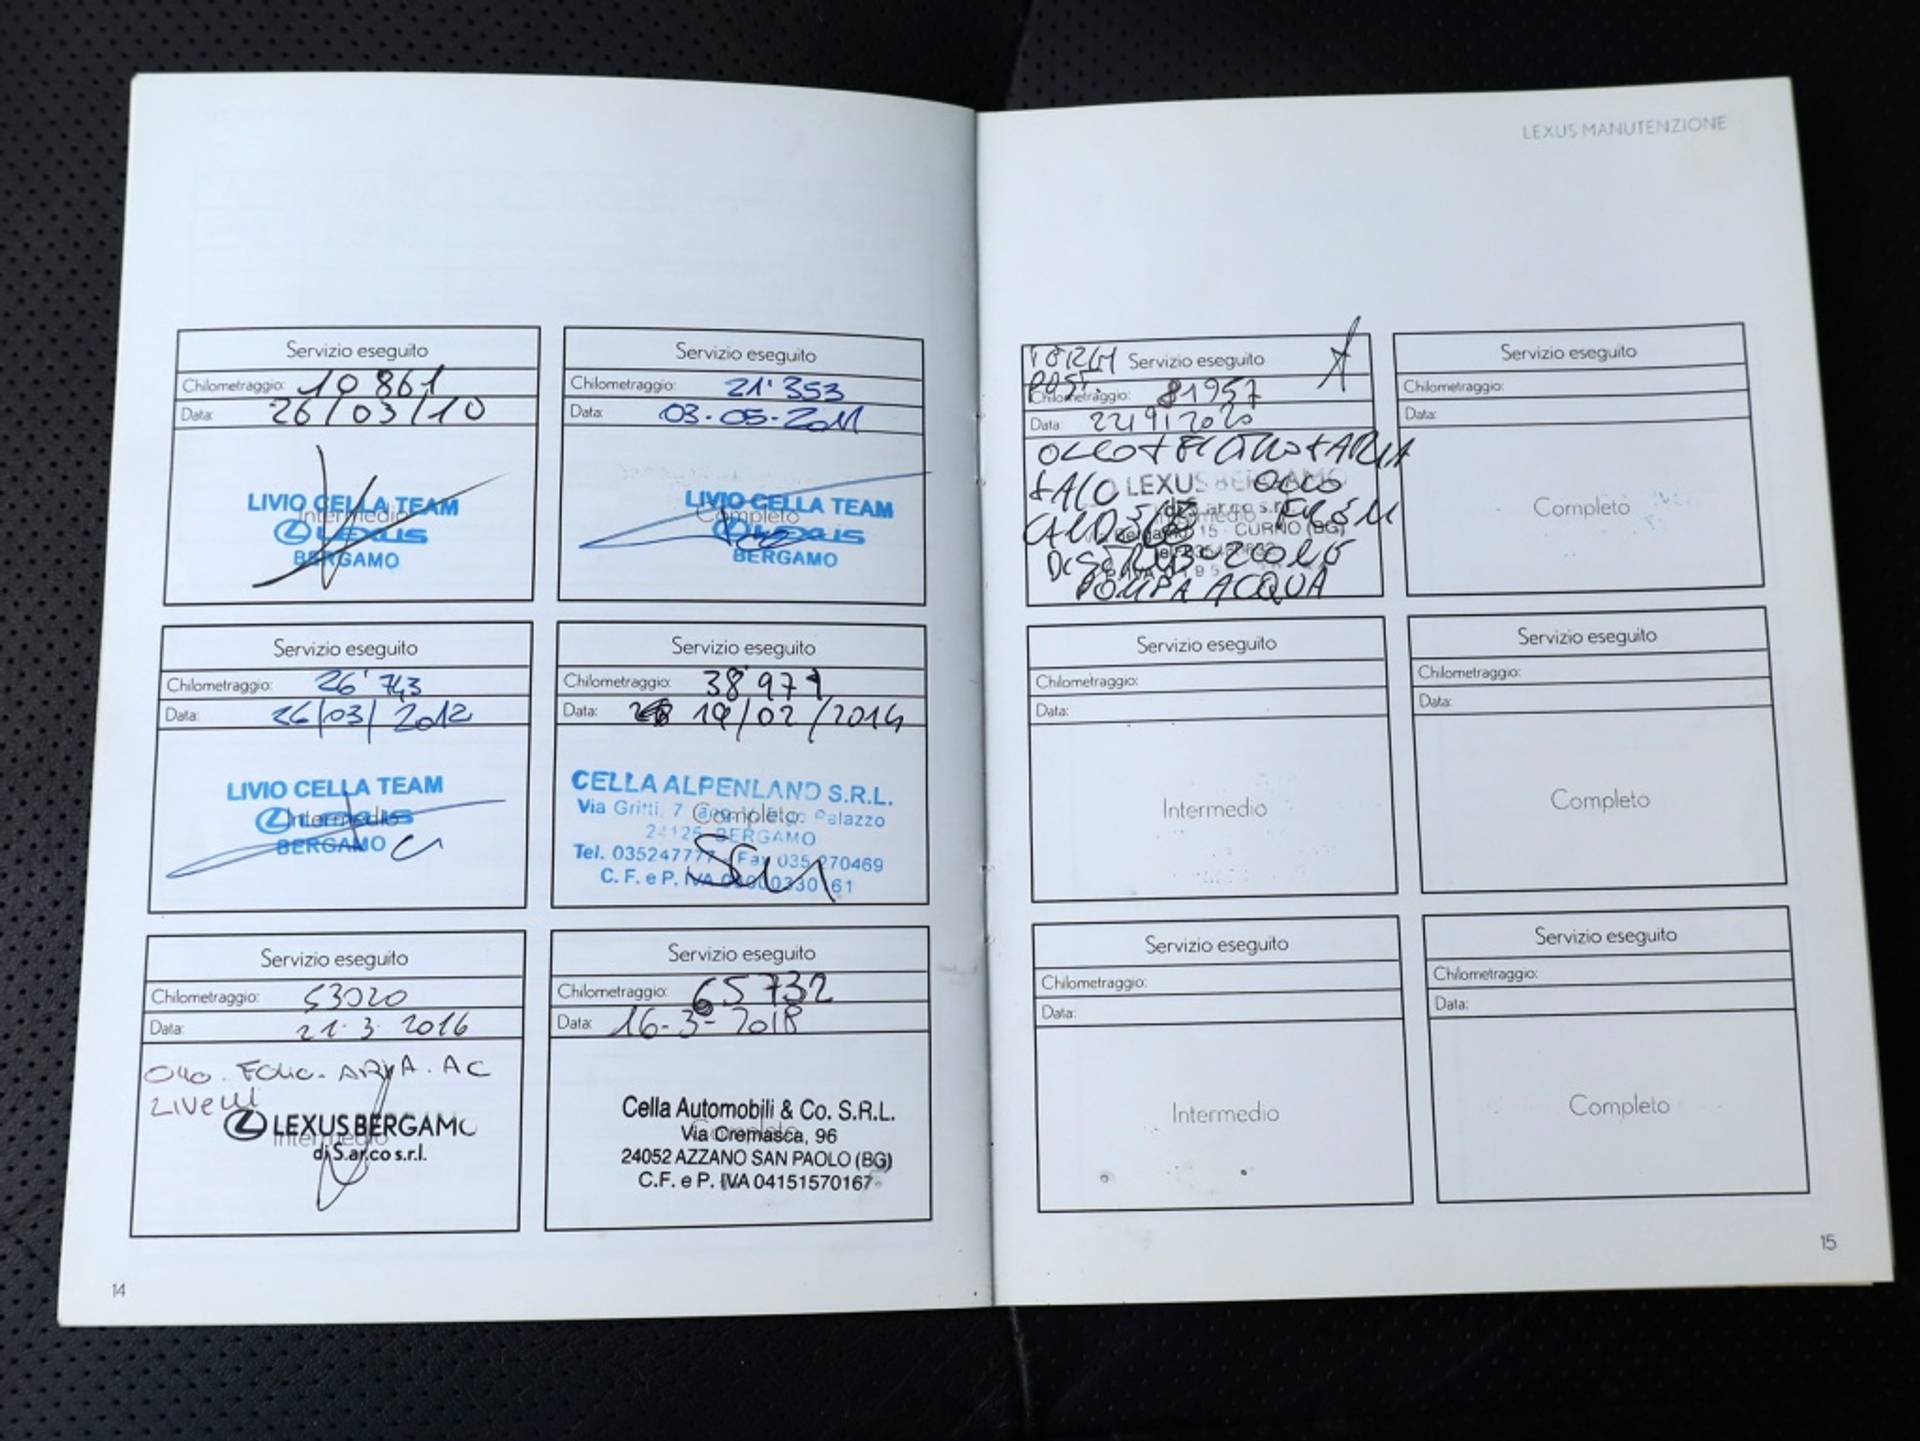 LEXUS MANUTENZIONE
Servizio eseguito
Chilometraggio: 10 861
Data: 26/03/10
LIVIO CELLA TEAM
Intermedio
LEXUS
BERGAMO
Servizio eseguito
Chilometraggio: 21'353
Data: 03-05-2011
LIVIO CELLA TEAM
Completo
LEXUS
BERGAMO
Servizio eseguito
Chilometraggio: 26'743
Data: 26/03/2012
LIVIO CELLA TEAM
Intermedio
LEXUS
BERGAMO
Servizio eseguito
Chilometraggio: 38'971
Data: 19/02/2014
CELLA ALPENLAND S.R.L.
Via Gritti, 7 Palazzo
Completo
24126 BERGAMO
Tel. 035247777 - Fax 035 270469
C. F. e P. IVA
Servizio eseguito
Chilometraggio: 53020
Data: 21.3.2016
Olio. Filtro. ARIA. AC
Livelli
LEXUS BERGAMO
Intermedio
di S.ar.co s.r.l.
Servizio eseguito
Chilometraggio: 65732
Data: 16-3-2018
Cella Automobili & Co. S.R.L.
Completo
Via Cremasca, 96
24052 AZZANO SAN PAOLO (BG)
C.F. e P. IVA 04151570167
14
POST.
Servizio eseguito
Chilometraggio: 81957
Data: 22/9/2020
OLIO + FILTRO + ARIA
LEXUS BERGAMO OLIO
di S.ar.co s.r.l.
Intermedio
15 - CURNO (BG)
POMPA ACQUA
Servizio eseguito
Chilometraggio:
Data:
Completo
Servizio eseguito
Chilometraggio:
Data:
Intermedio
Servizio eseguito
Chilometraggio:
Data:
Completo
Servizio eseguito
Chilometraggio:
Data:
Intermedio
Servizio eseguito
Chilometraggio:
Data:
Completo
15